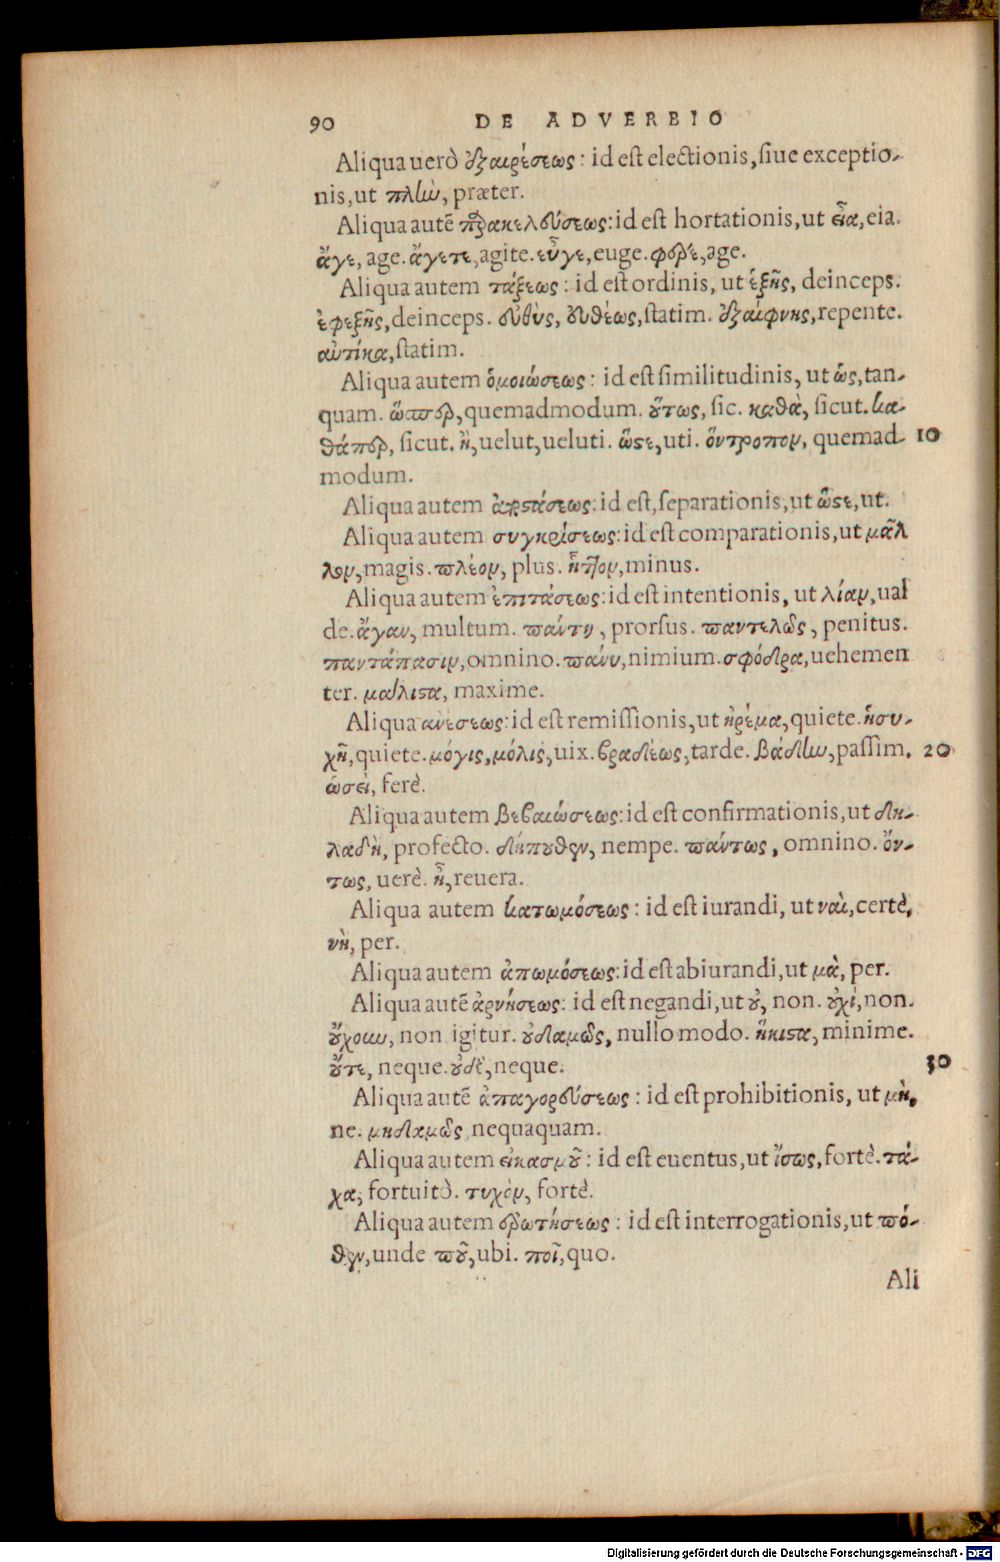 90 DE ADVERBIO
Aliqua uerò ἐξαιρέσεως: id est electionis, siue exceptio-
nis, ut πλὴν, præter.
Aliqua autē παρακελεύσεως: id est hortationis, ut εἶα, eia.
ἄγε, age. ἄγετε, agite. εὖγε, euge. φέρε, age.
Aliqua autem τάξεως: id est ordinis, ut ἑξῆς, deinceps.
ἐφεξῆς, deinceps. εὐθὺς, εὐθέως, statim. ἐξαίφνης, repente.
αὐτίκα, statim.
Aliqua autem ὁμοιώσεως: id est similitudinis, ut ὡς, tan-
quam. ὥσπερ, quemadmodum. οὕτως, sic. καθὰ, sicut. κα-
θάπερ, sicut. ἢ, uelut, ueluti. ὥστε, uti. ὅντροπον, quemad- 10
modum.
Aliqua autem ἀποστάσεως: id est, separationis, ut ὥστε, ut.
Aliqua autem συγκρίσεως: id est comparationis, ut μᾶλ
λον, magis. πλέον, plus. ἧττον, minus.
Aliqua autem ἐπιτάσεως: id est intentionis, ut λίαν, ual
de. ἄγαν, multum. πάντῃ, prorsus. παντελῶς, penitus.
παντάπασιν, omnino. πάνυ, nimium. σφόδρα, uehemen
ter. μάλιστα, maxime.
Aliqua ανέσεως: id est remissionis, ut ἠρέμα, quiete. ἡσυ-
χῆ, quiete. μόγις, μόλις, uix. βραδέως, tarde. βάδην, passim. 20
ὡσεὶ, ferè.
Aliqua autem βεβαιώσεως: id est confirmationis, ut δη-
λαδὴ, profecto. δήπουθεν, nempe. πάντως, omnino. ὄν-
τως, uerè. ἦ, reuera.
Aliqua autem κατωμόσεως: id est iurandi, ut ναὶ, certè,
νὴ, per.
Aliqua autem ἀπωμόσεως: id est abiurandi, ut μὰ, per.
Aliqua autē ἀρνήσεως: id est negandi, ut οὐ, non. οὐχί, non.
οὔχουν, non igitur. οὐδαμῶς, nullo modo. ἥκιστα, minime.
οὔτε, neque. οὐδὲ, neque. 30
Aliqua autē ἀπαγορεύσεως: id est prohibitionis, ut μὴ,
ne. μηδαμῶς nequaquam.
Aliqua autem εἰκασμοῦ: id est euentus, ut ἴσως, fortè. τά-
χα, fortuitò. τυχὸν, fortè.
Aliqua autem ἐρωτήσεως: id est interrogationis, ut πό-
θεν, unde ποῦ, ubi. ποῖ, quo.
Ali
Digitalisierung gefördert durch die Deutsche Forschungsgemeinschaft - DFG